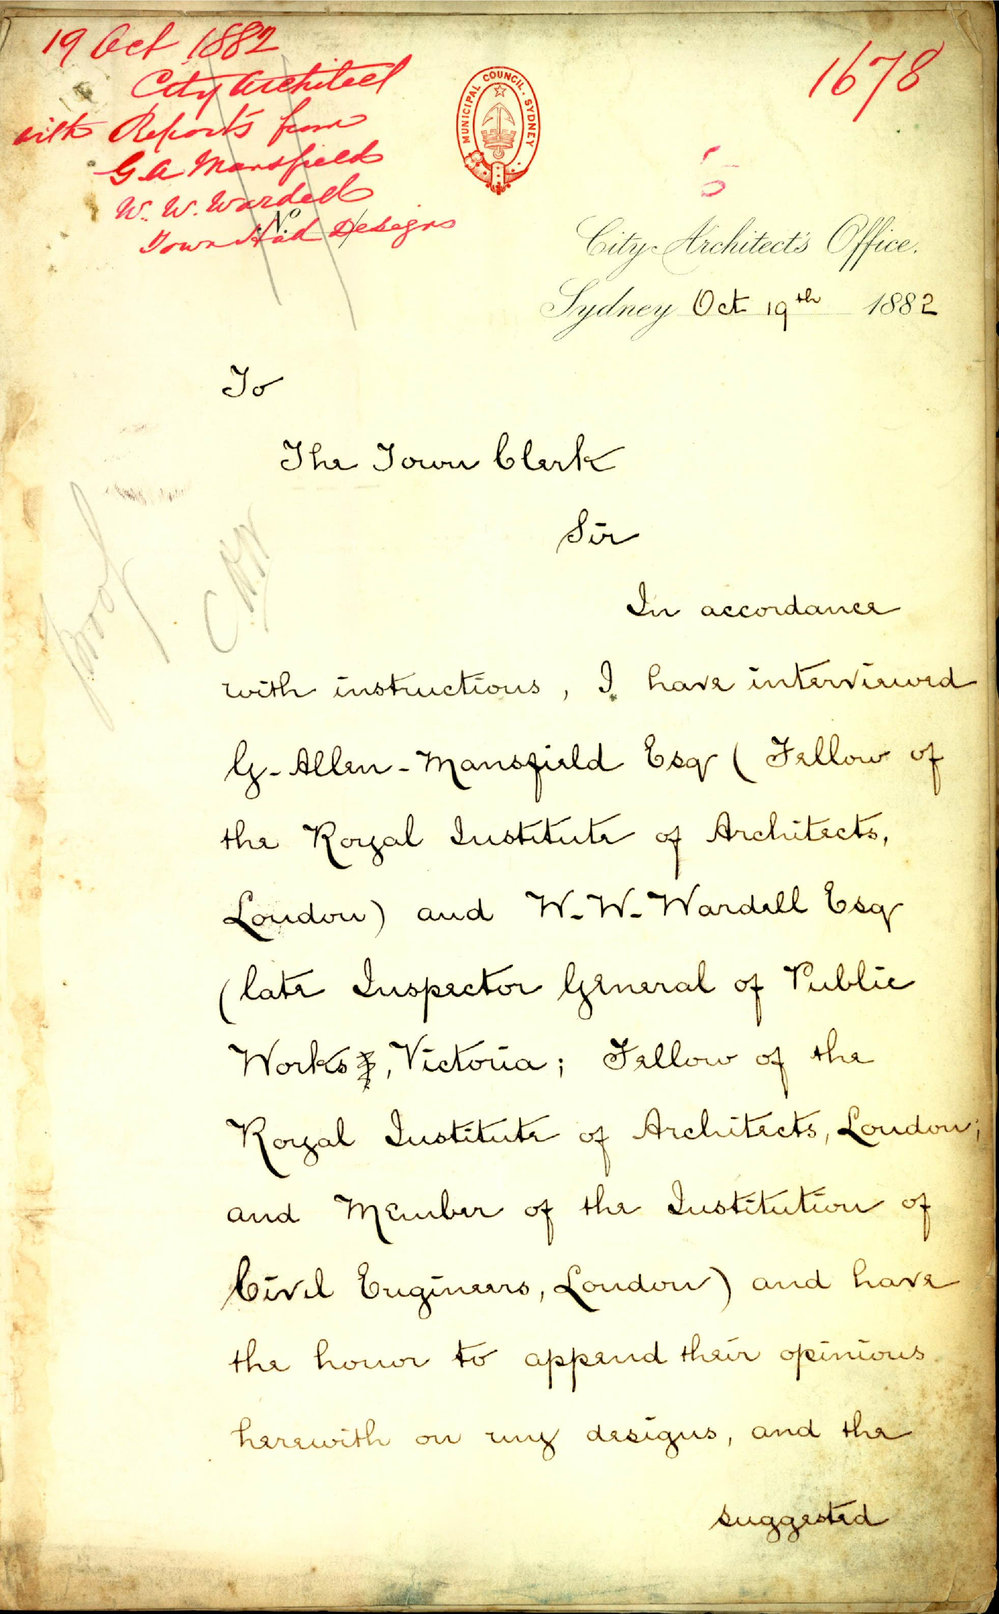 19 Oct 1882
City Architect
with Reports from
G A Mansfield
W. W. Wardell
Town Hall Designs
1678
MUNICIPAL COUNCIL. SYDNEY
5
No.
City Architect's Office.
Sydney Oct 19th 1882
To
The Town Clerk
Sir
proof
In accordance
with instructions, I have interviewed
G-Allen-Mansfield Esq (Fellow of
the Royal Institute of Architects,
London) and W-W-Wardell Esq
(late Inspector General of Public
Works, Victoria; Fellow of the
Royal Institute of Architects, London;
and Member of the Institution of
Civil Engineers, London) and have
the honor to append their opinions
herewith on my designs, and the
suggested